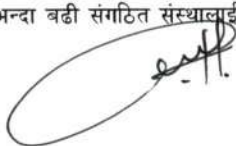 भन्दा बढी संगठित संस्थालाई